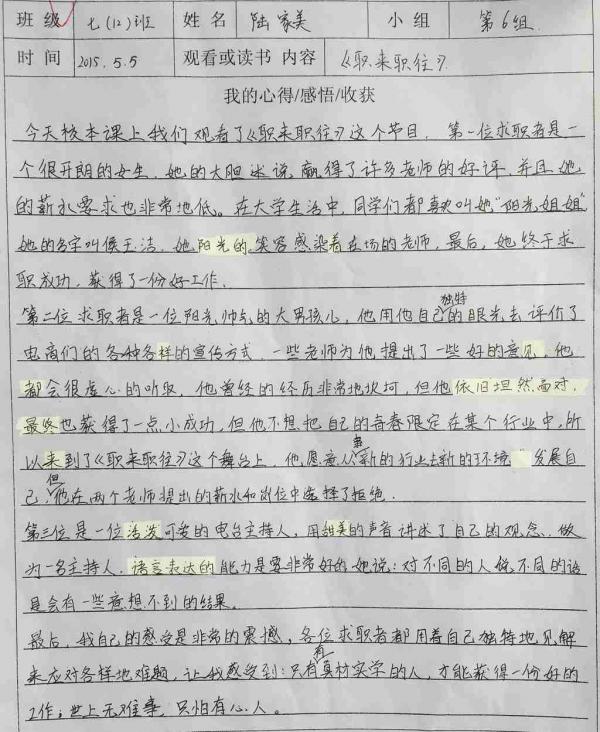 班级 七(12)班 姓名 陆家美 小组 第6组
时间 2015.5.5 观看或读书内容 《职来职往》
我的心得/感悟/收获
今天校本课上我们观看了《职来职往》这个节目。第一位求职者是一
个很开朗的女生,她的大胆述说赢得了许多老师的好评,并且她
的薪水要求也非常地低。在大学生活中,同学们都喜欢叫她"阳光姐姐"
她的名字叫侯玉洁,她阳光的笑容感染着在场的老师,最后,她终于求
职成功,获得了一份好工作。
第二位求职者是一位阳光帅气的大男孩儿,他用他自己独特的眼光去评价了
电商们的各种各样的宣传方式,一些老师为他提出了一些好的意见,他
都会很虚心的听取,他曾经的经历非常地坎坷,但他依旧坦然面对,
最终也获得了一点小成功,但他不想把自己的青春限定在某个行业中,所
以来到了《职来职往》这个舞台上,他愿意从事新的行业去新的环境 发展自
己,但他在两个老师提出的薪水和岗位中选择了拒绝.
第三位是一位活泼可爱的电台主持人,用甜美的声音讲述了自己的观念,做
为一名主持人,语言表达的能力是要非常好的,她说:对不同的人说不同的话
是会有一些意想不到的结果。
最后,我自己的感受是非常的震撼,各位求职者都用着自己独特地见解
来应对各样地难题,让我感受到:只有有真材实学的人,才能获得一份好的
工作;世上无难事,只怕有心人。